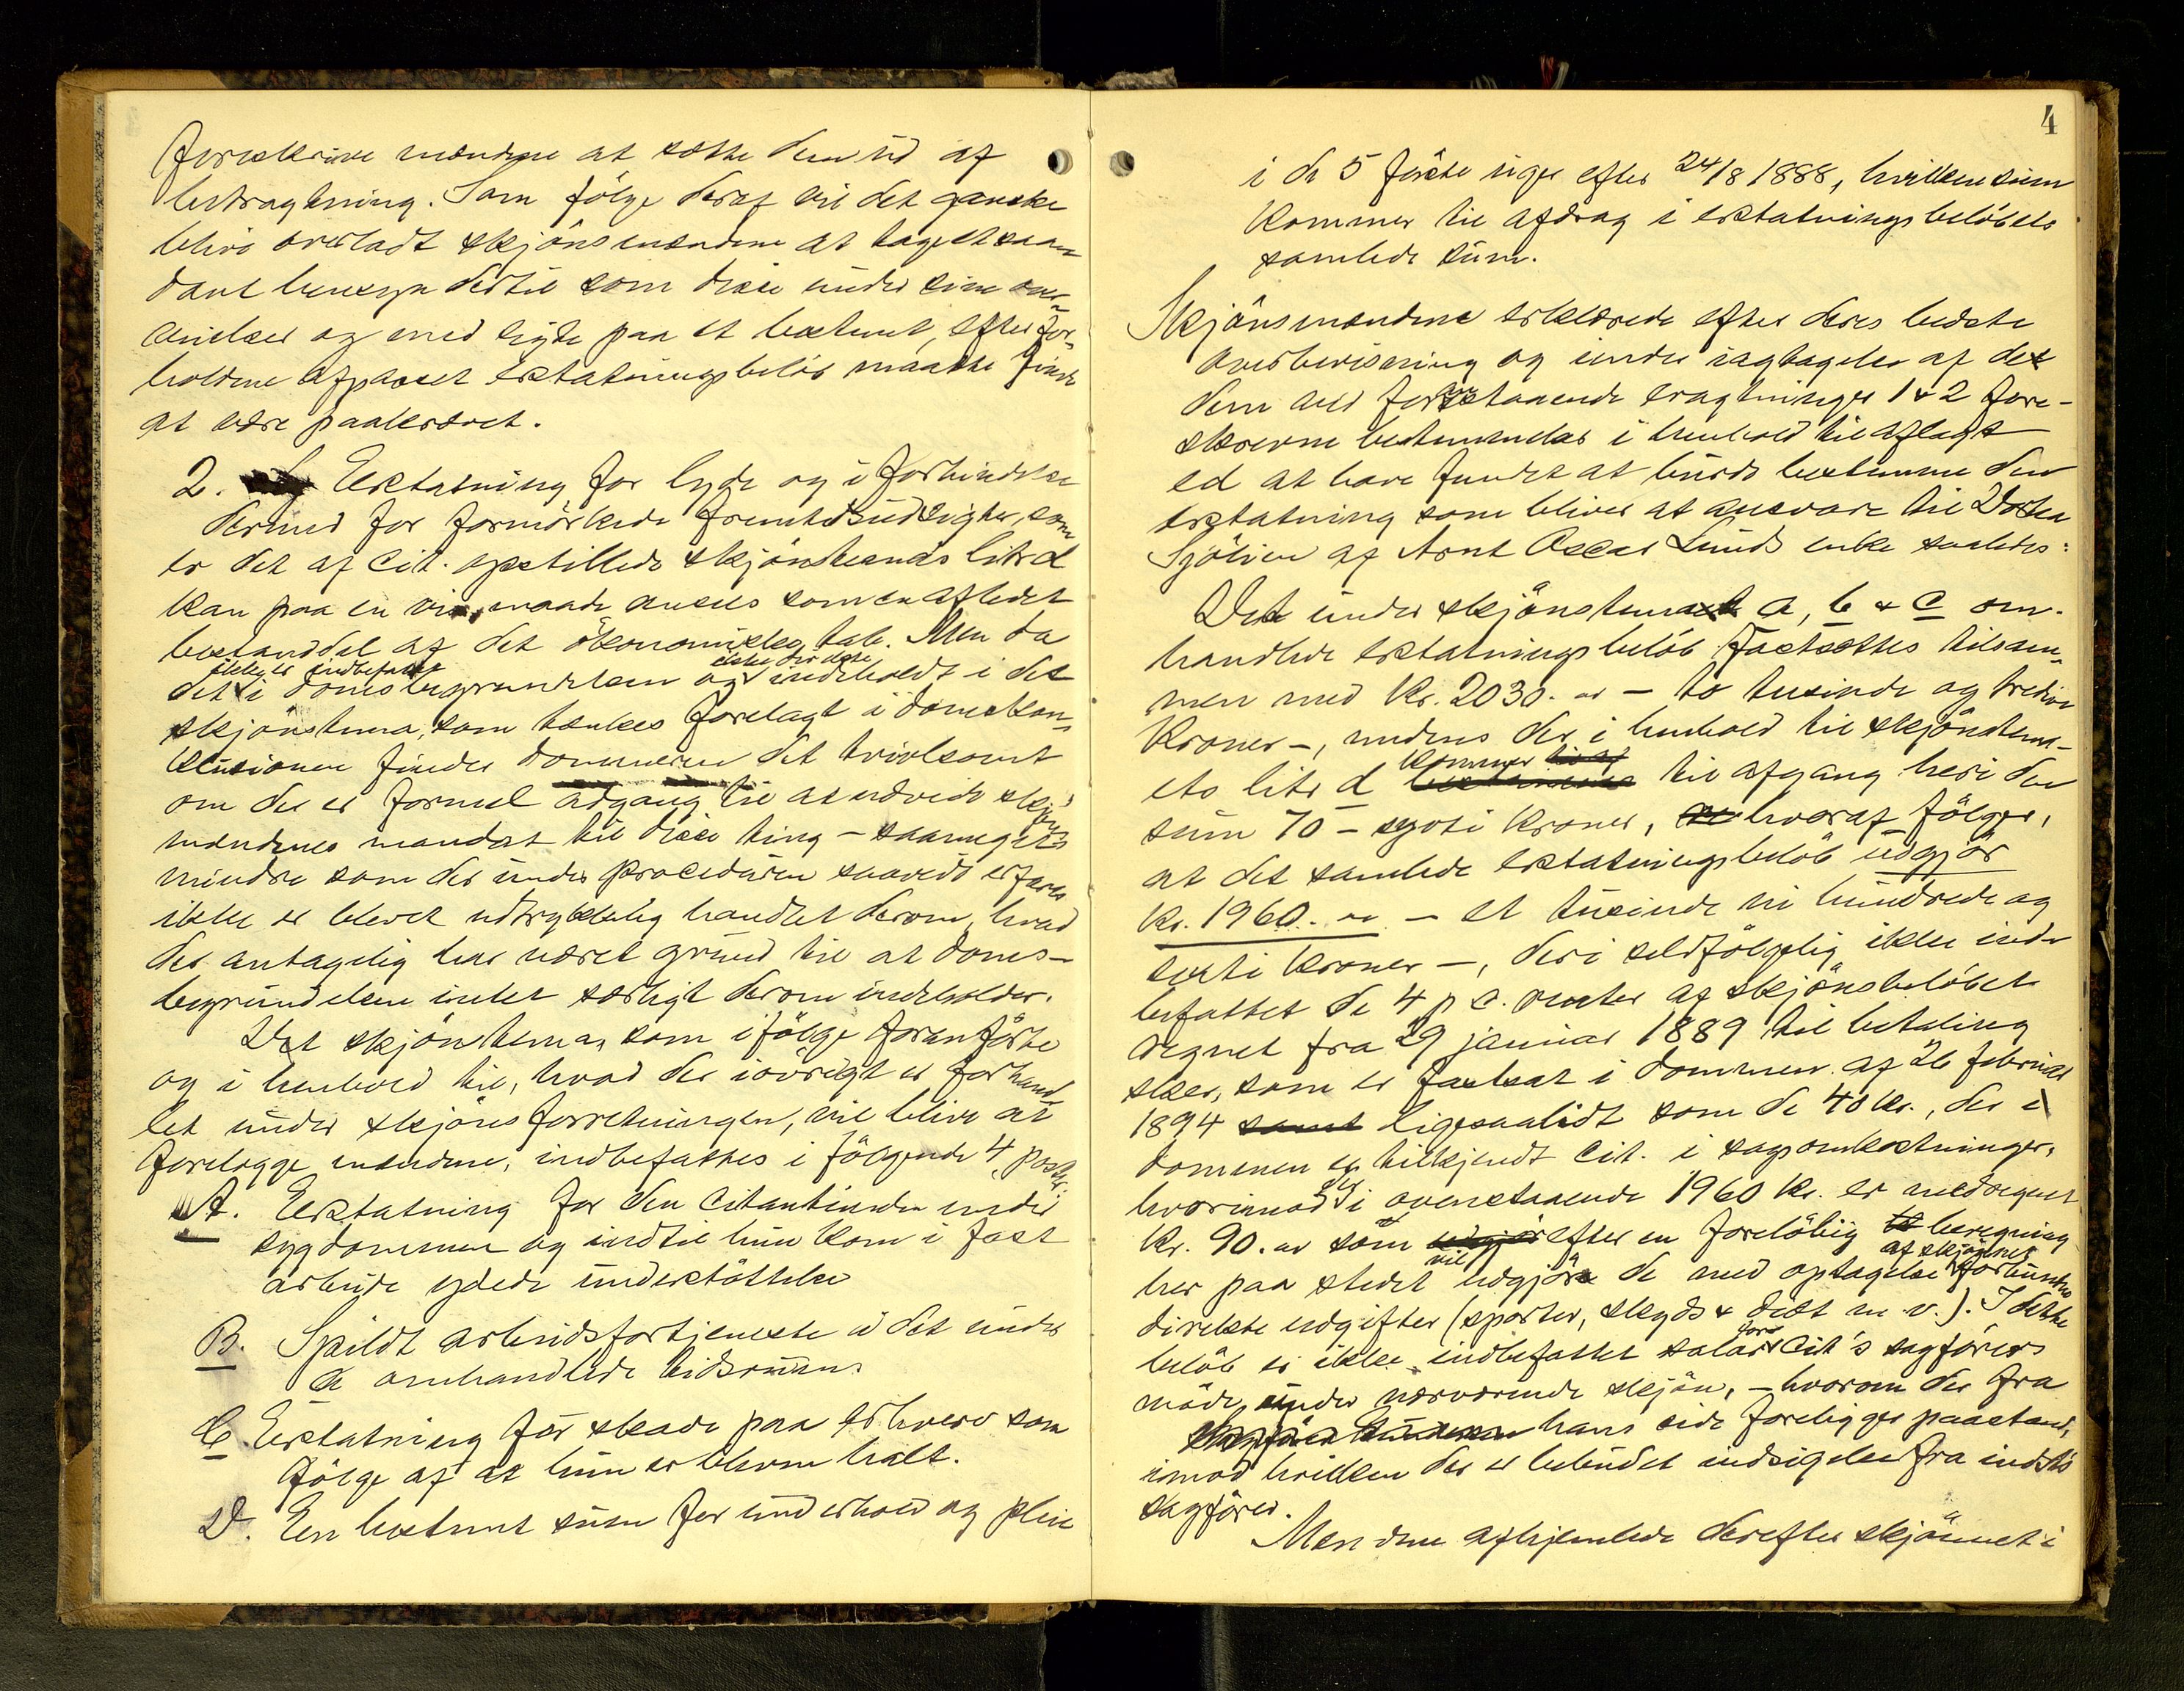 foreskrive mændene at sætte den ud af
betragtning. Som følge deraf vil det ganske
blive overladt skjönsmændene at tage et saa-
dant hensyn dertil som disse under sine over-
veielser og med sigte paa et bestemt, efter for-
holdene afpasset erstatningsbelöb maatte finde
at være paakrævet.
2. Erstatning for lyde og i forbindelse
dermed for formörkede fremtidsudsigter, som
er det af cit. opstillede skjönstemas litr d
kan paa en vis maade ansees som en afledet
bestanddel af det ökonomiske tab. Men da
det ikke er indbefattet i domsbegrundelsen og ikke heller indeholdt i det
skjönstema, som tænkes forelagt i domskon-
klusionen finder dommeren det tvivlsomt
om der er formel adgang til at udvide skjöns-
mændenes mandat til disse ting – saameget
mindre som der under proceduren saavidt erfares
ikke er blevet udtrykkelig handlet derom, hvad
der antagelig har været grund til at doms-
begrundelsen intet særligt derom indeholder.
Det skjönstema, som ifölge foranförte
og i henhold til, hvad der iövrigt er forhand-
let under skjönsforretningen, vil blive at
forelægge mændene, indbefattes i fölgende 4 poster:
A. Erstatning for den citantinden under
sygdommen og indtil hun kom i fast
arbeide ydede understöttelse
B. Spildt arbeidsfortjeneste i det under
a omhandlede tidsrum.
C. Erstatning for skade paa erhverv som
fölge af at hun er bleven halt.
D. En bestemt sum for underhold og pleie
4
i de 5 förste uger efter 24/8 1888, hvilken sum
kommer til afdrag i erstatningsbelöbets
samlede sum.
Skjönsmændene erklærede efter deres bedste
overbevisning og under iagttagelse af de
dem ved foranstaaende eragtninger 1 & 2 fore-
skrevne bestemmelser i henhold til aflagt
ed at have fundet at burde bestemme den
erstatning som bliver at ansvare til Dortea
Sjölien af Arnt Oscar Lunds enke saaledes:
Det under skjönstemaets a, b & c om-
handlede erstatningsbelöb fastsættes tilsam-
men med Kr. 2030. – to tusinde og tredive
Kroner –, medens der i henhold til skjönstema-
ets litr d kommer til afgang heri den
sum 70 – sytti Kroner, hvoraf fölger,
at det samlede erstatningsbelöb udgjör
Kr. 1960. – et tusinde ni hundrede og
sexti kroner –, deri selvfölgelig ikke ind-
befattet de 4 p c. renter af skjönsbelöbet
regnet fra 29 januar 1889 til betaling
sker, som er fastsat i dommen af 26 februar
1894 samt ligesaalidt som de 40 kr., der i
dommen er tilkjendt cit. i sagsomkostninger,
hvorimod der i ovenstaaende 1960 Kr. er medregnet
Kr. 90. som efter en forelöbig beregning
her paa stedet vil udgjöre de med optagelse af skjönnet forbundne
direkte udgifter (sporter, skyds & diæt m. v.). I dette
belöb er ikke indbefattet salær for cit's sagförers
möde under nærværende skjön, – hvorom der fra
hans side foreligger paastand,
imod hvilken der er bebudet indsigelse fra indst's
sagförer.
Mændene afhjemlede derefter skjönnet i